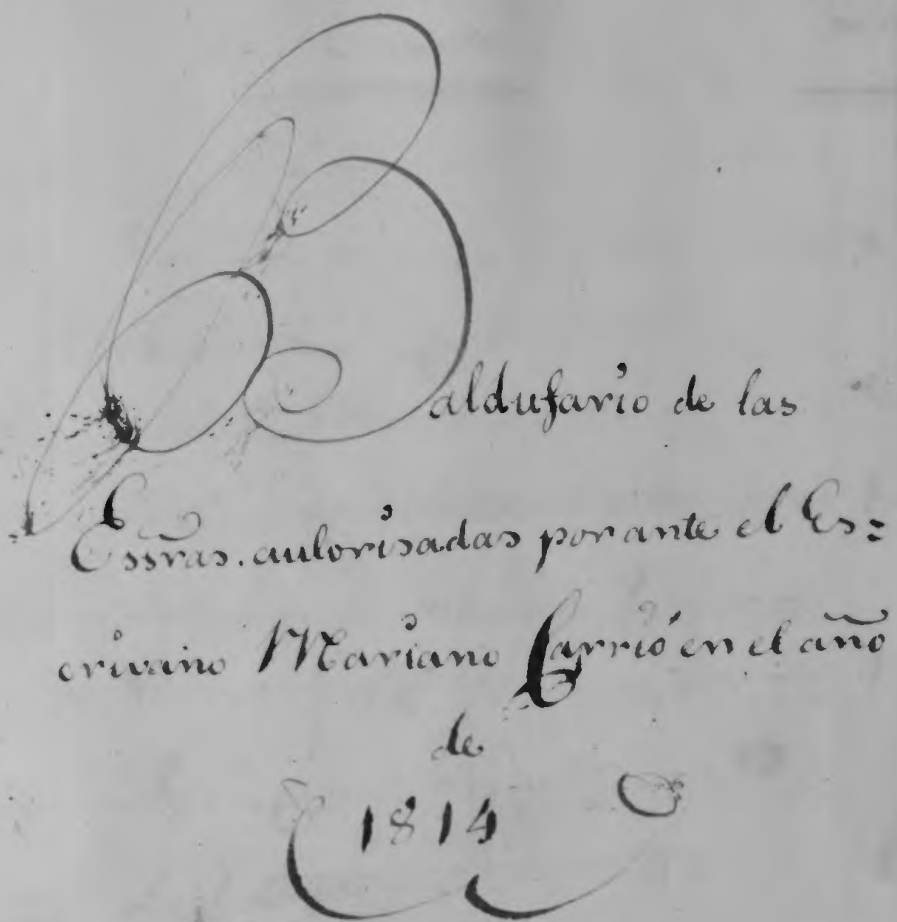 Baldufario de las
Essras. autorisadas por ante el Es=
crivano Mariano Carrió en el año
de
1814